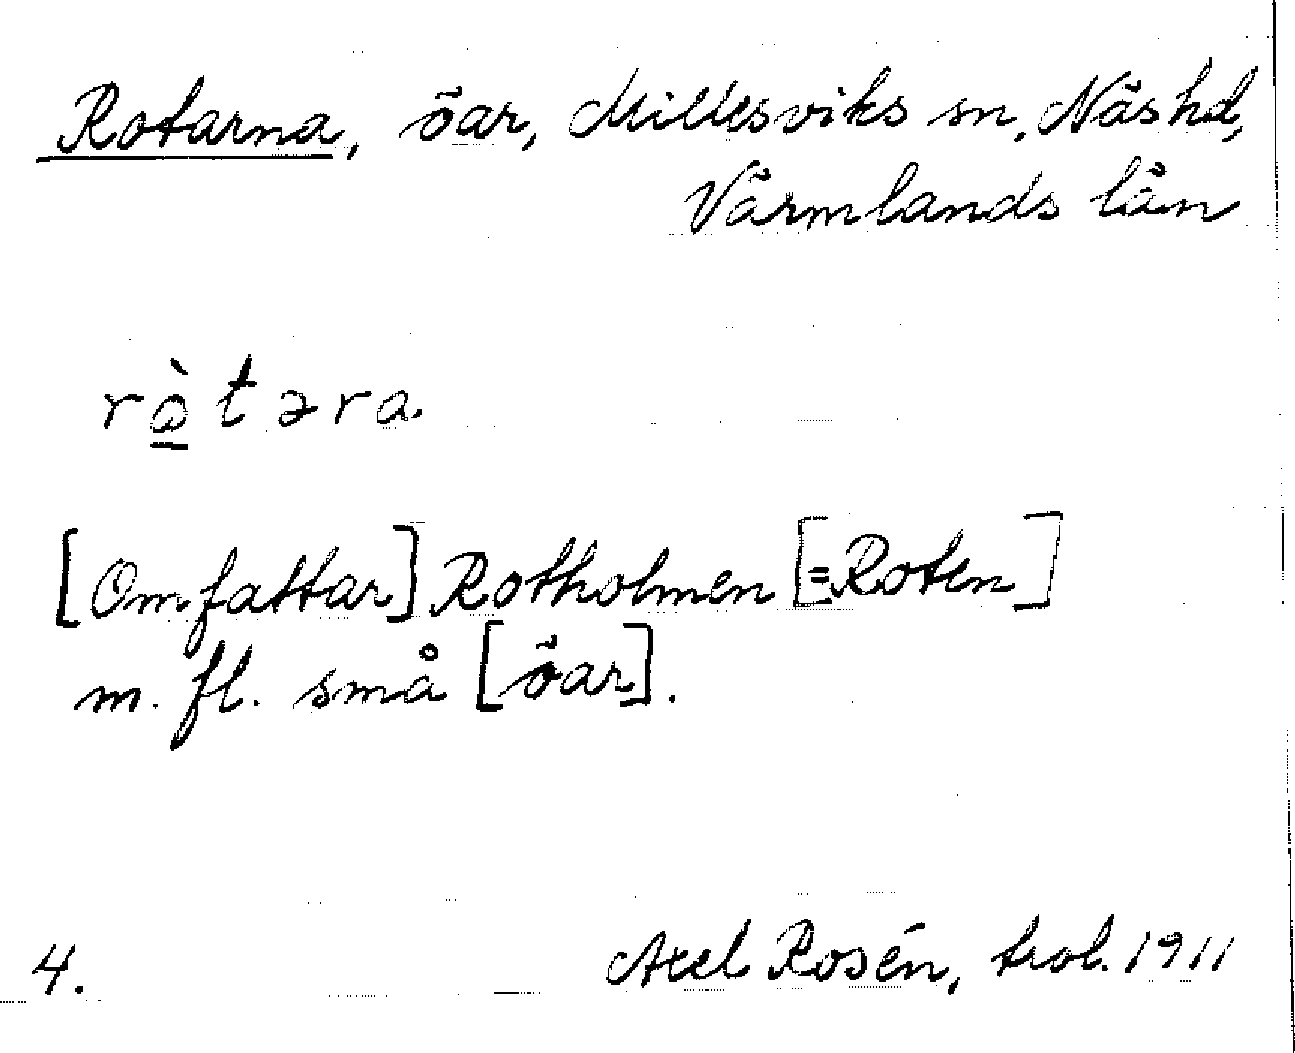 Rotarna, öar, Millesviks sn, Näs hd,
Värmlands län
rò̱təra
[Omfattar] Rotholmen [=Roten]
m. fl. små [öar].
4. Axel Rosén, trol. 1911